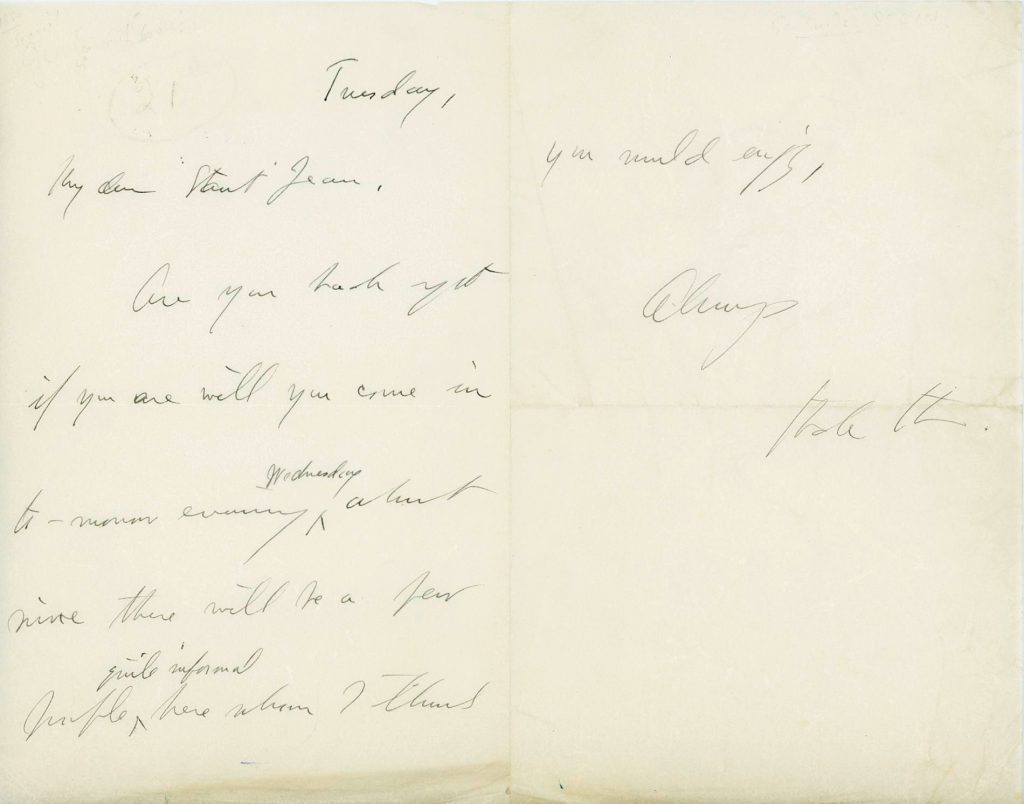 Tuesday,
My dear "Stout" Jean,
Are you back yet
if you are will you come in
Wednesday
to-morrow evening ^ about
nine there will be a few
quite informal
people ^ here whom I think
you would enjoy,
Always